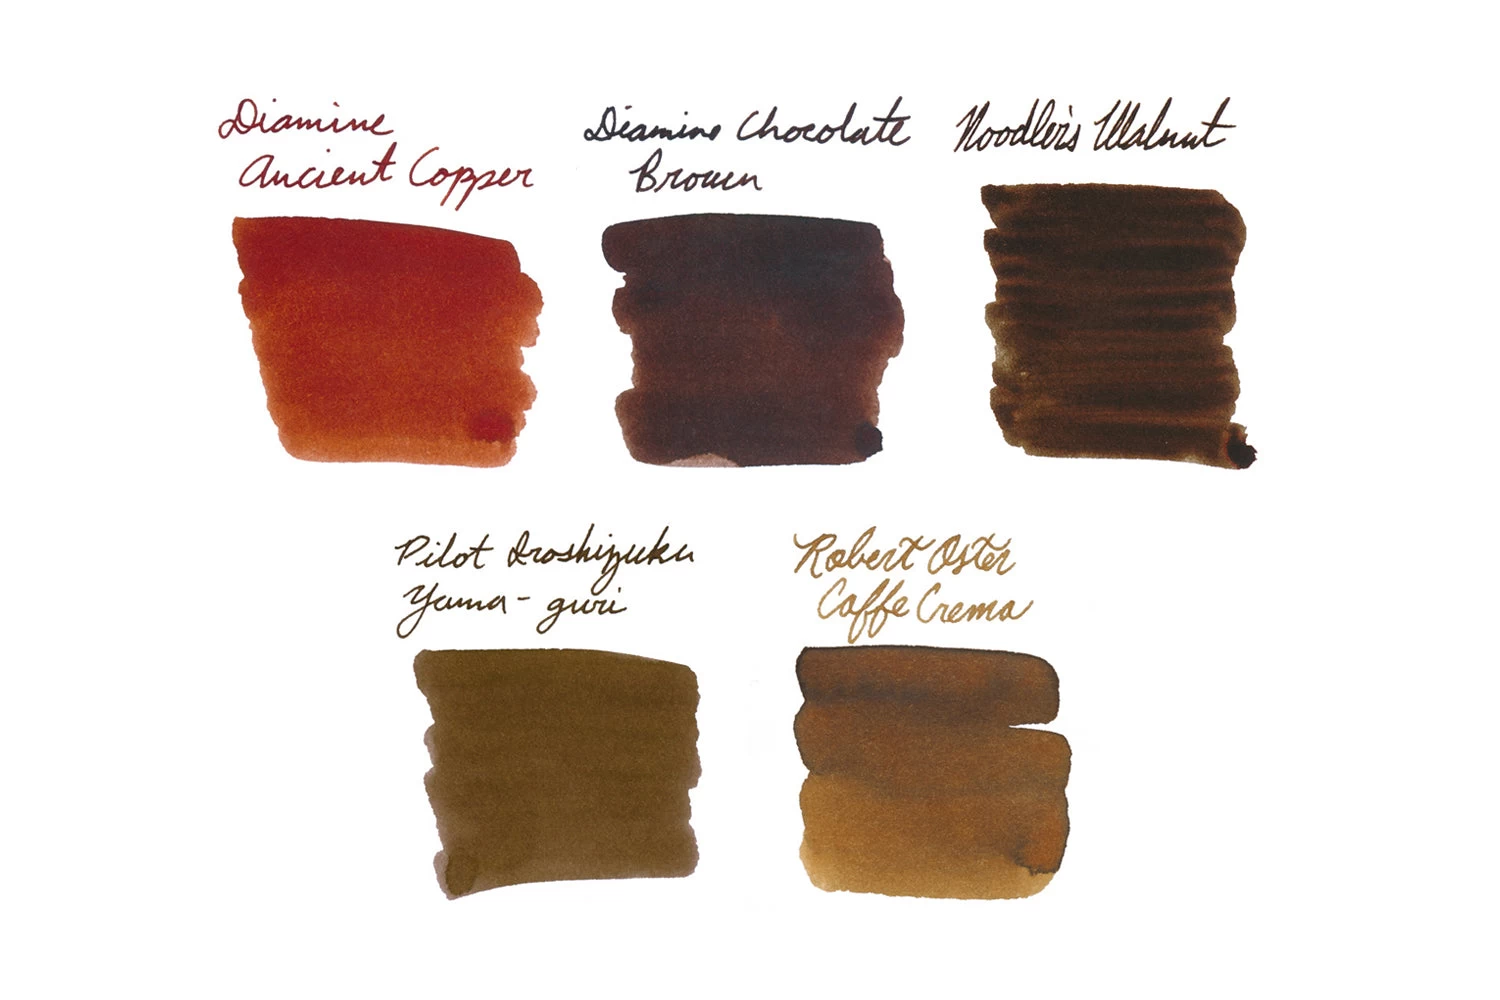 Diamine
Ancient Copper
Diamine Chocolate
Brown
Noodler's Walnut
Pilot Iroshizuku
Yama-guri
Robert Oster
Caffe Crema